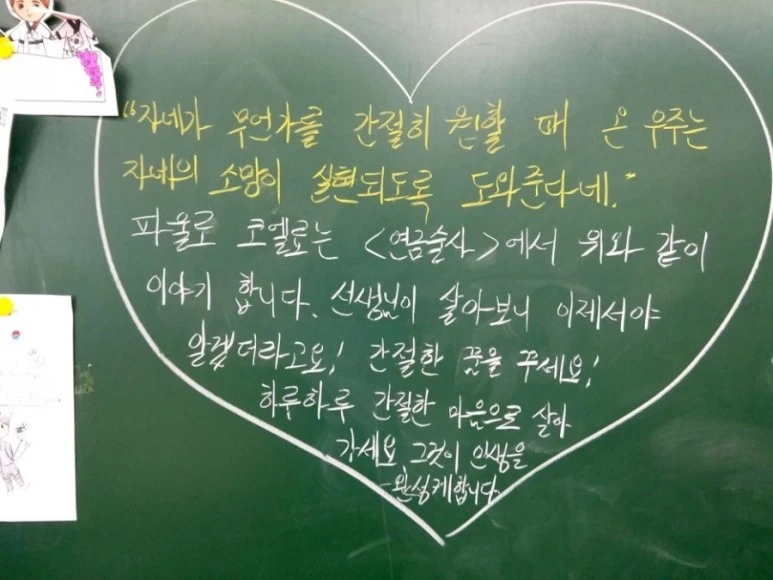 "자네가 무언가를 간절히 원할 때 온 우주는
자네의 소망이 실현되도록 도와준다네."
파울로 코엘료는 <연금술사>에서 위와 같이
이야기 합니다. 선생님이 살아보니 이제서야
알겠더라고요! 간절한 꿈을 꾸세요!
하루하루 간절한 마음으로 살아
가세요 그것이 인생을
완성케합니다.